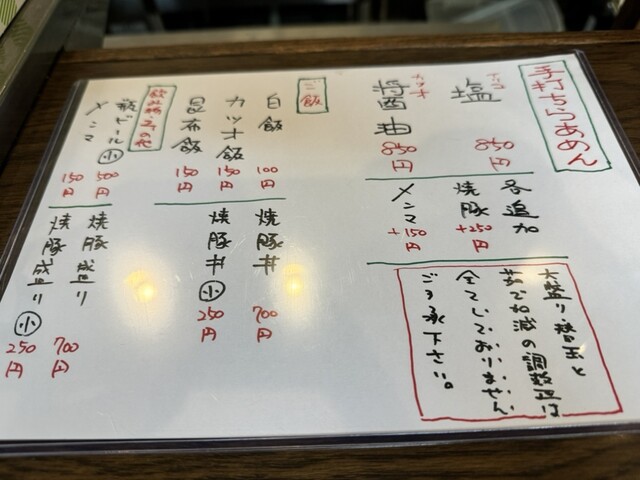 手打ちらあめん
アッコ
塩
850円
カツオ
醤油
850円
各追加
焼豚
+250円
メンマ
+150円
大盛り・替玉と
茹で加減の調整は
全てしておりません
ご了承下さい。
ご飯
白飯
100円
カツオ飯
150円
昆布飯
150円
焼豚丼
700円
焼豚丼 小
250円
飲み物・その他
瓶ビール 小
500円
メンマ
150円
焼豚盛り
700円
焼豚盛り 小
250円